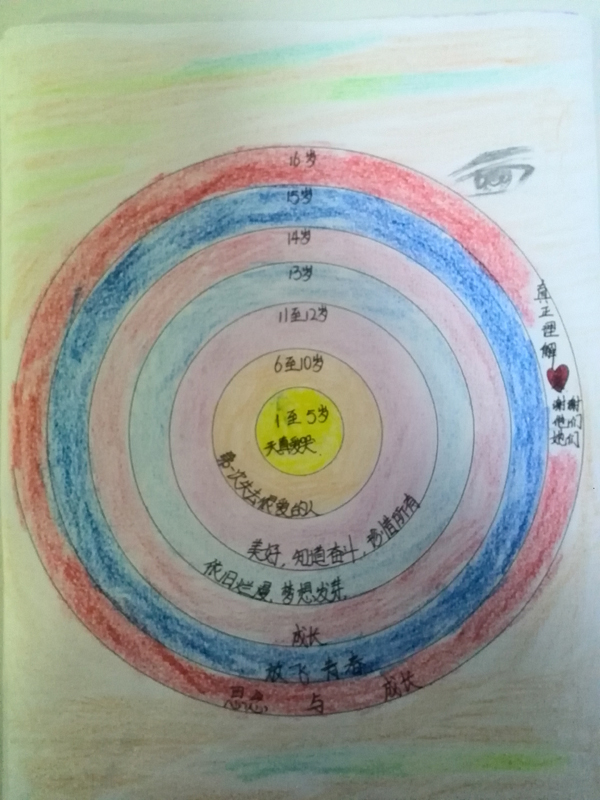 16岁
15岁
14岁
13岁
11至12岁
6至10岁
1至5岁
天真爱哭
第一次失去最爱的人
美好,知道奋斗,珍惜所有
依旧烂漫,梦想发芽.
成长
放飞青春
思念与成长
真正理解
谢谢
他们
她们